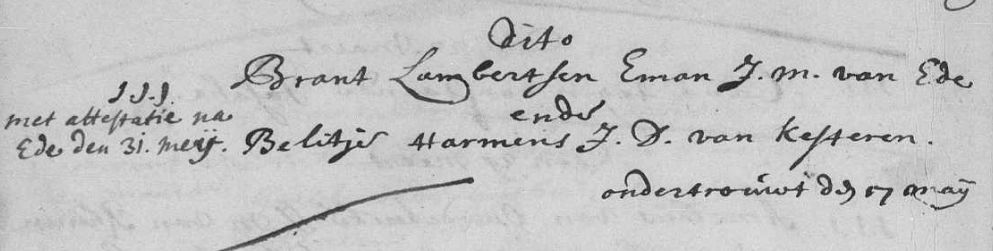 dito
Brant Lambertsen Eman J. m. van Ede
ende
Belitje Harmens J. D. van Kesteren.
ondertrouwt den 17 maÿ
J J J.
met attestatie na
Ede den 31. meÿ.